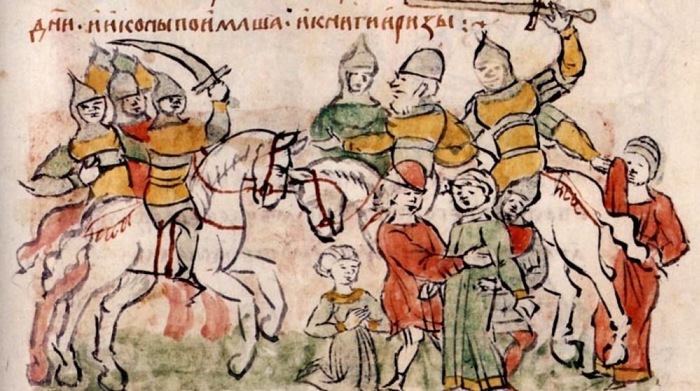 дни · и иконы поимаша · и книги и ризы :~